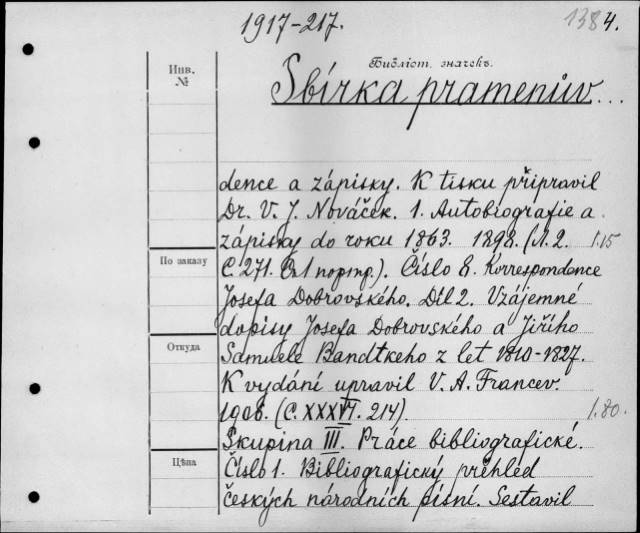 1917-217.
1384.
Библіот. значекъ.
Инв. №
Sbírka pramenův...
dence a zápisky. K tisku připravil
Dr. V. J. Nováček. 1. Autobiografie a
zápisky do roku 1863. 1898. (Л. 2. 1.15
С. 271. портр.). Číslo 8. Korrespondence
По заказу
Josefa Dobrovského. Díl 2. Vzájemné
dopisy Josefa Dobrovského a Jiřího
Откуда
Samuele Bandtkeho z let 1810-1827.
K vydání upravil V. A. Francev.
1906. (С. XXXVI. 214). 1.80.
Skupina III. Práce bibliografické.
Цѣна
Číslo 1. Bibliografický přehled
českých národních písní. Sestavil